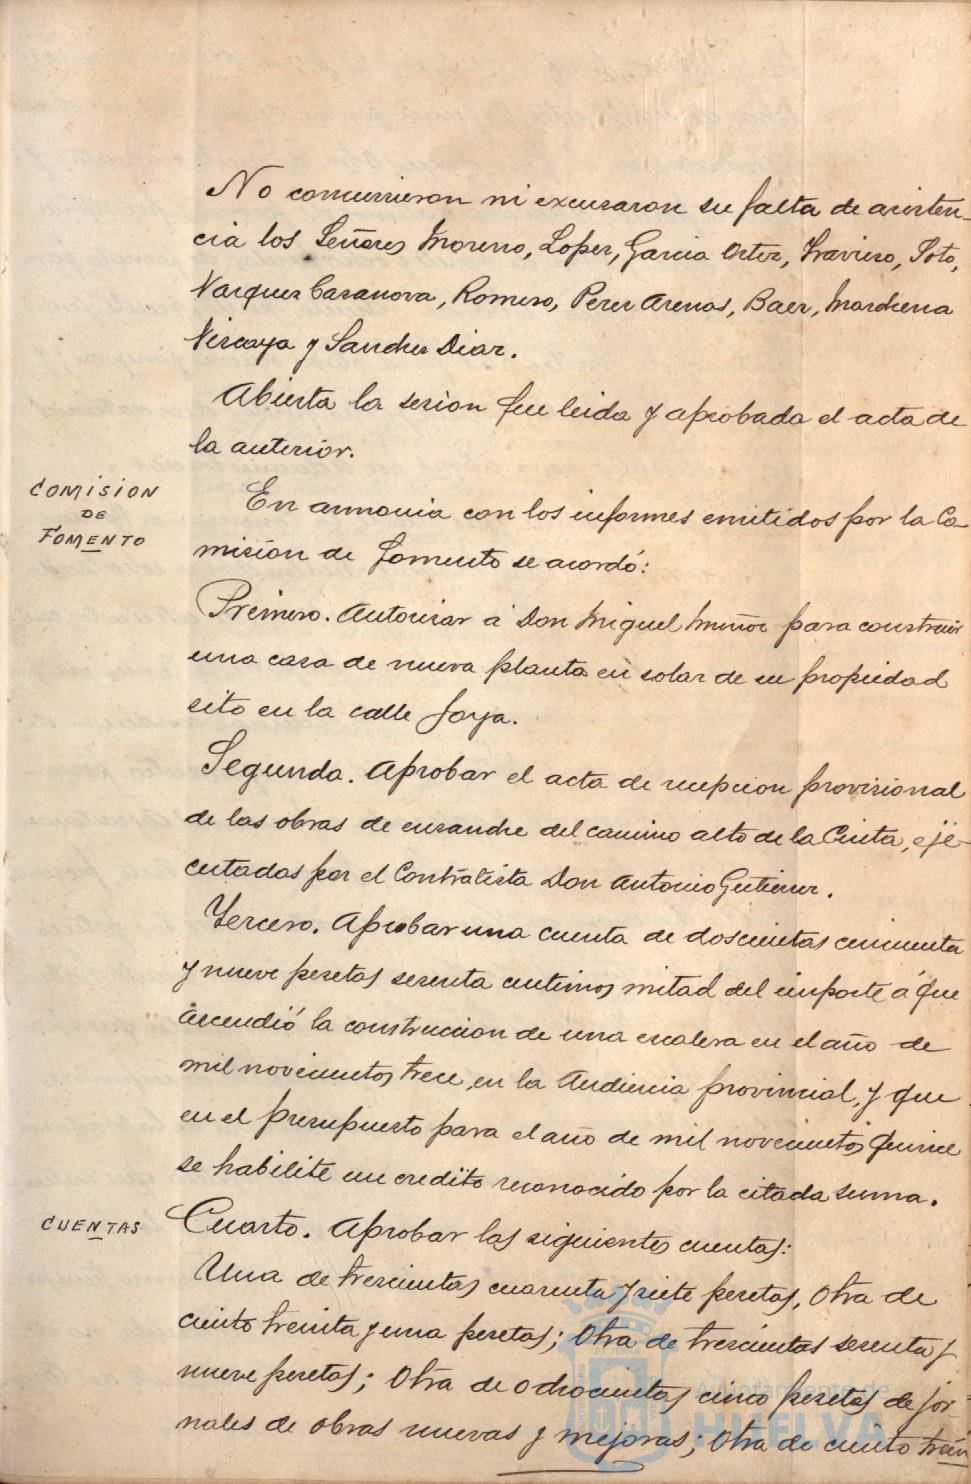 No concurrieron ni excusaron su falta de asisten-
cia los Señores Moreno, Lopez, Garcia Ortiz, Travieso, Soto,
Vazquez Casanova, Romero, Perez Arenas, Baez, Marchena
Vizcaya y Sanchez Diaz.
Abierta la sesion fue leida y aprobada el acta de
la anterior.
COMISION
DE
FOMENTO
En armonia con los informes emitidos por la Co-
misión de fomento se acordó:
Primero. Autorizar á Don Miguel Muñoz para construir
una casa de nueva planta en solar de su propiedad
sito en la calle Joya.
Segundo. Aprobar el acta de recepcion provisional
de las obras de ensanche del camino alto de la Cinta, eje-
cutadas por el Contratista Don Antonio Gutierrez.
Tercero. Aprobar una cuenta de doscientas cincuenta
y nueve pesetas sesenta centimos mitad del importe á que
ascendió la construccion de una escalera en el año de
mil novecientos trece, en la Audiencia provincial, y que
en el presupuesto para el año de mil novecientos quince
se habilite un credito reconocido por la citada suma.
CUENTAS
Cuarto. Aprobar las siguientes cuentas:
Una de trescientas cuarenta y siete pesetas, Otra de
ciento treinta y una pesetas; Otra de trescientas sesenta y
nueve pesetas; Otra de ochocientas cinco pesetas de jor-
nales de obras nuevas y mejoras; Otra de ciento trein
Ayuntamiento de
HUELVA